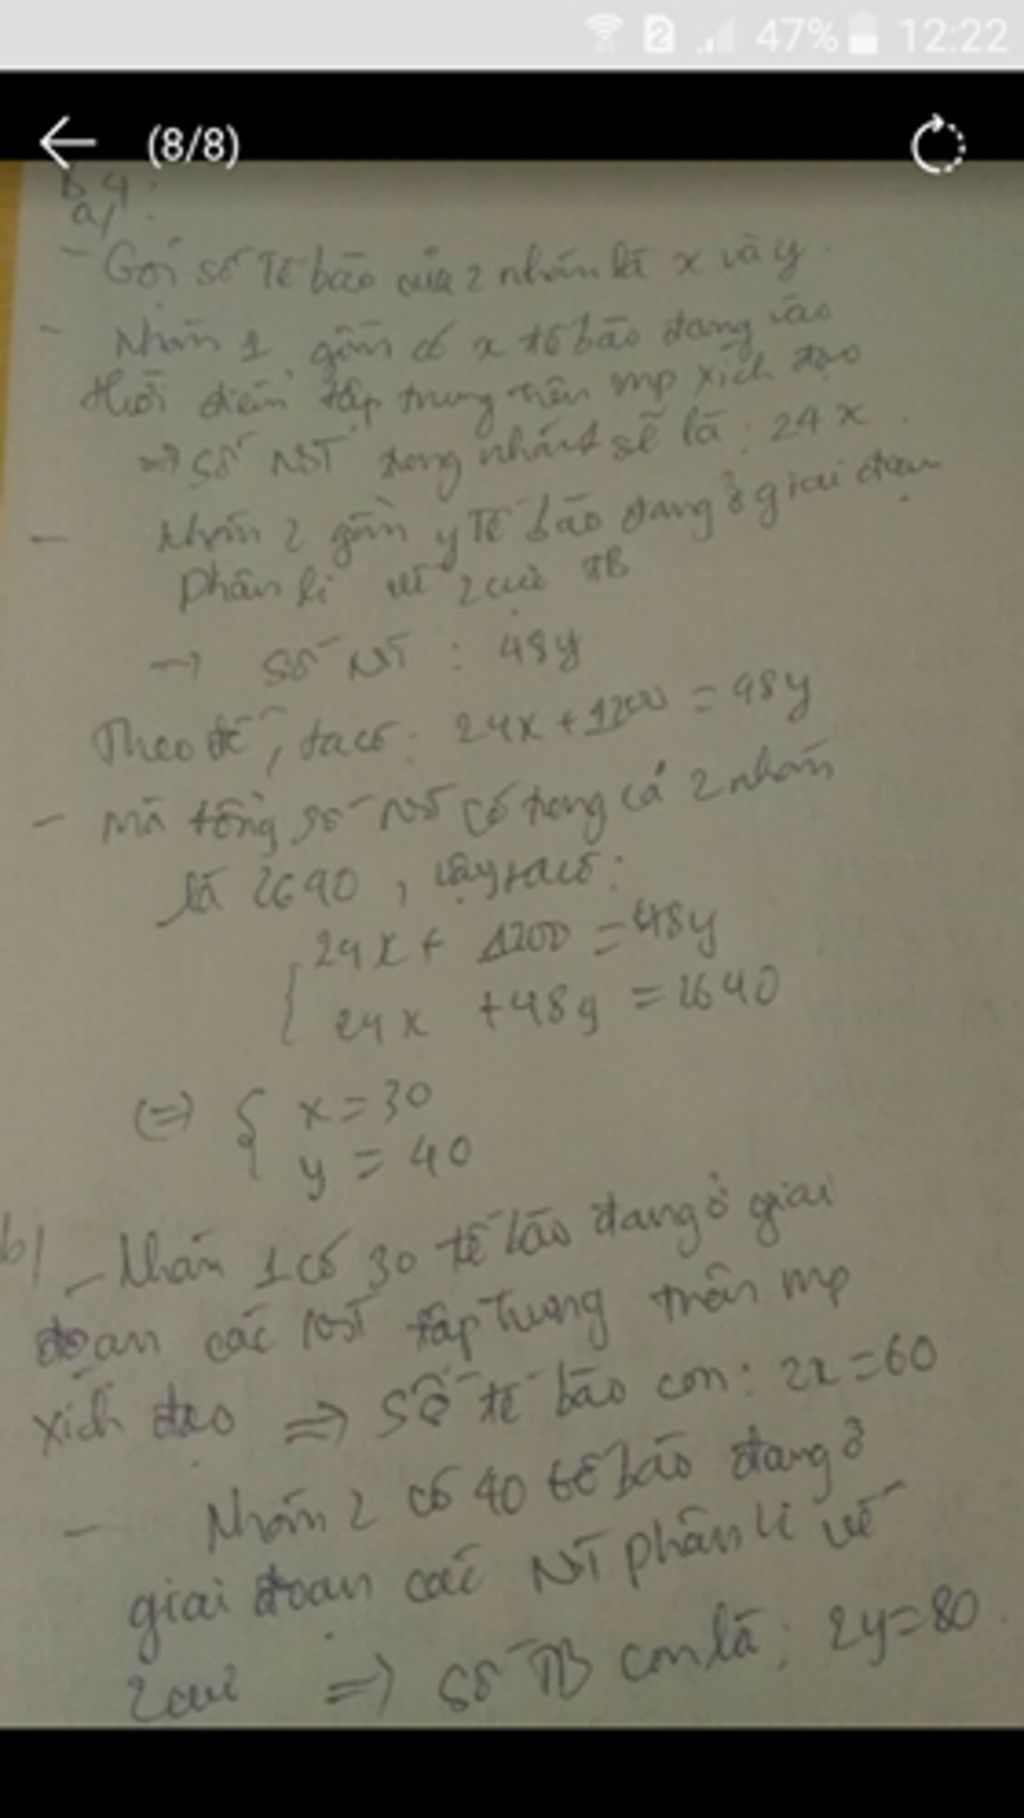 47% 12:22
(8/8)
B4:
a/
- Gọi số tế bào của 2 nhóm là x và y.
- Nhóm 1 gồm có x tế bào đang vào
thời điểm tập trung trên mp xích đạo
=> số NST trong nhóm 1 sẽ là: 24x.
- Nhóm 2 gồm y tế bào đang ở giai đoạn
phân li về 2 cực TB
-> số NST: 48y
Theo đề, ta có: 24x + 1200 = 48y
- Mà tổng số NST có trong cả 2 nhóm
là 2640, vậy ta có:
24x + 1200 = 48y
24x + 48y = 2640
(=) { x = 30
y = 40
b/ - Nhóm 1 có 30 tế bào đang ở giai
đoạn các NST tập trung trên mp
xích đạo => số tế bào con: 2x = 60
- Nhóm 2 có 40 tế bào đang ở
giai đoạn các NST phân li về
2 cực => số TB con là: 2y = 80.